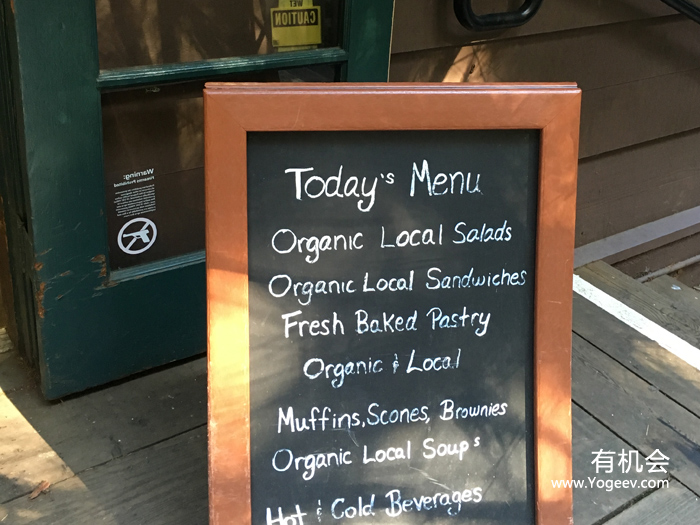 CAUTION
WET
Warning:
Firearms Prohibited
Today's Menu
Organic Local Salads
Organic Local Sandwiches
Fresh Baked Pastry
Organic & Local
Muffins, Scones, Brownies
Organic Local Soup's
Hot & Cold Beverages
有机会
www.Yogeev.com